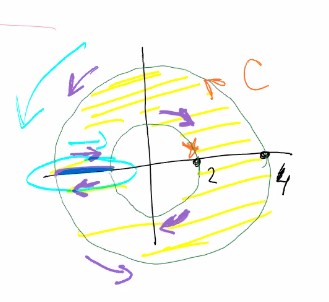 C
2
4